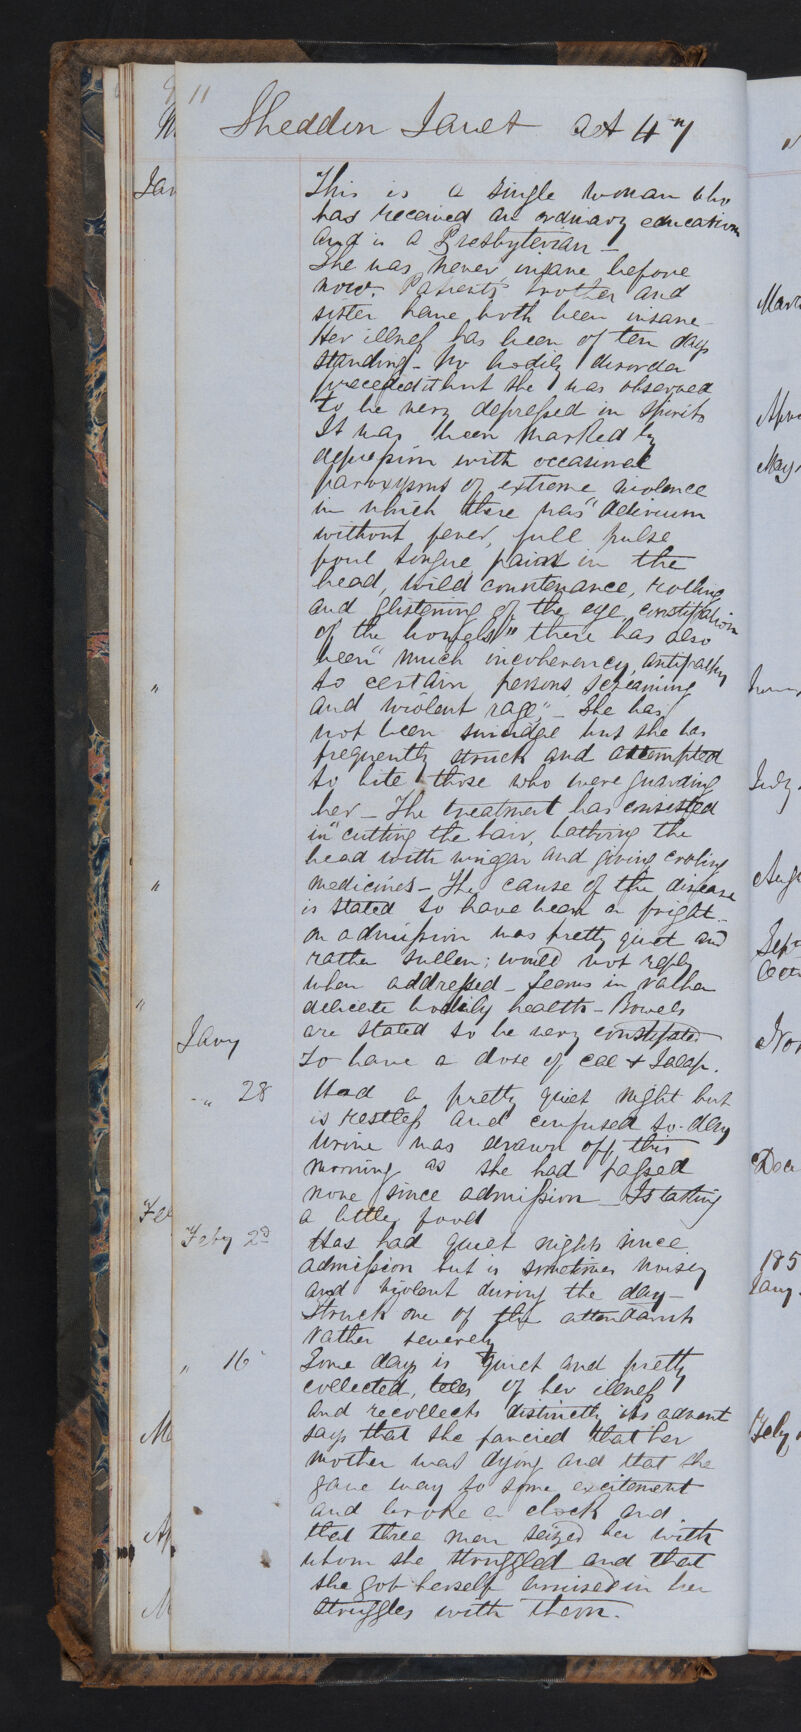 11
Shedden Janet aet 47
This is a single woman who
has received an ordinary education
and is a Presbyterian -
She was never insane before
now. Patient's brother and
sister have both been insane -
Her illness has been of ten days
standing - No bodily disorder
preceded it but she was observed
to be very depressed in spirits
It has been marked by
depression with occasional
paroxysms of extreme violence
in which there was "delirium
without fever, full pulse
foul tongue, pain in the
head, wild countenance, rolling
and glistening of the eye, constipation
of the bowels" there has also
been "much incoherency, antipathy
to certain persons, screaming
and violent rage" - She has
not been suicidal but she has
frequently struck and attempted
to bite those who were guarding
her - The treatment has consisted
in "cutting the hair, bathing the
head with vinegar and giving cooling
medicines - The cause of the disease
is stated to have been a fright -
On admission was pretty quiet and
rather sullen; would not reply
when addressed - Seems in rather
delicate bodily health - Bowels
are stated to be very constipated
Jany
To have a dose of cal & Jalap.
" 28 Had a pretty quiet night but
is restless and confused to-day
Urine was drawn off this
morning as she had passed
none since admission - Is taking
a little food
Feby 2d Has had quiet nights since
admission but is sometimes noisy
and violent during the day -
Struck one of the attendants
rather severely
" 16 Some days is quiet and pretty
collected, tells of her illness
and recollects distinctly its advent
says that she fancied that her
mother was dying and that she
gave way to some excitement
and broke a clock and
that three men seized her with
whom she struggled and that
she got herself bruised in her
struggles with them.